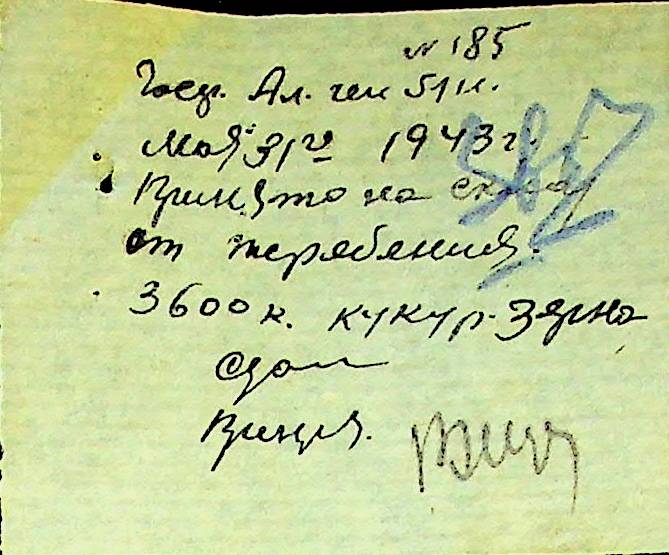 № 185
Госуд. Ал. чен 51 н.
Мая 31го 1943 г.
Принято на склад
от теребления
3600 к. кукур. зерна
Сдал
Принял.